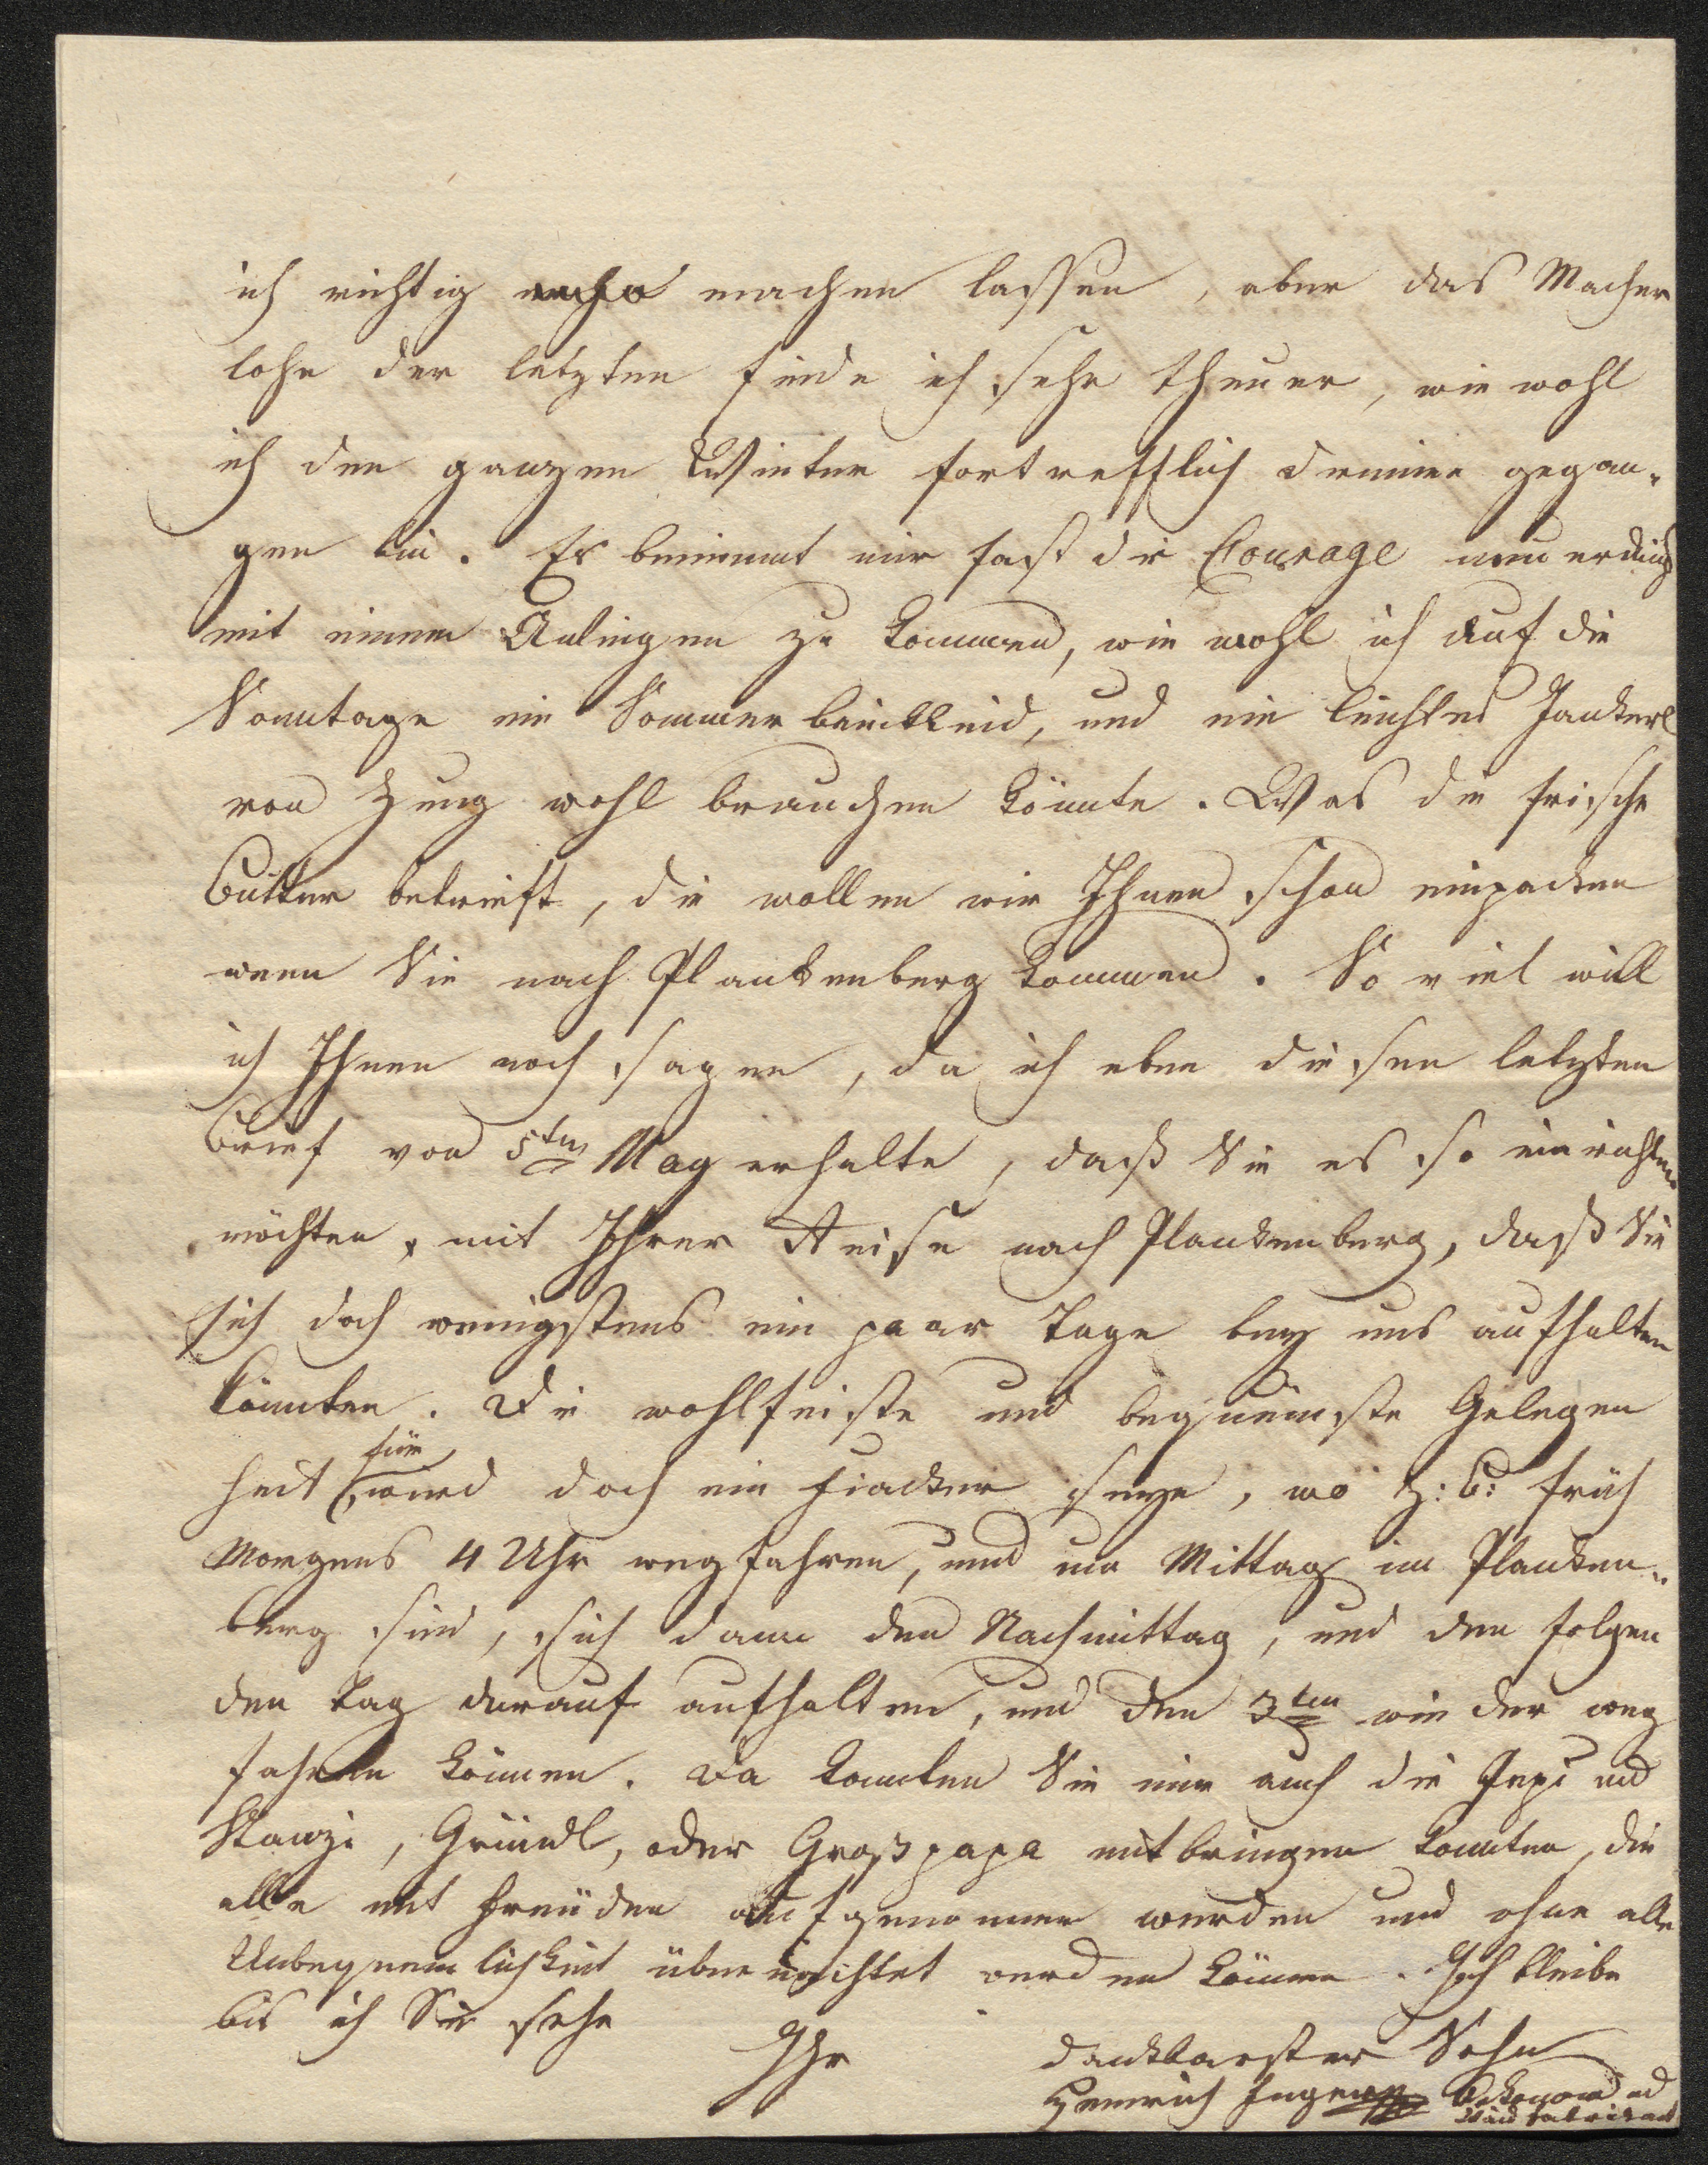 ich richtig machen lassen, aber das Macher
lohn der letzten finde ich sehr theuer, wie wohl
ich den ganzen Winter fortrefflich drinne gegan„
gen bin. Es benimmt mir fast die Courage neuerdings
mit einem Anliegen zu kommen, wie wohl ich auf die
Sonntage ein Sommerbeinkleid, und ein leichtes Jankerl
von Zeug wohl brauchen könnte. Was die frische
Butter betrieft, die wollen wir Ihnen schon einpacken
wenn Sie nach Plankenberg kommen. So viel will
ich Ihnen noch sagen, da ich eben diesen letzten
Brief von 5ten May erhalte, daß Sie es so einrichten
möchten, mit Ihrer Reise nach Plankenberg, daß Sie
sich doch wenigstens ein paar Tage bey uns aufhalten
könnten. Die wohlfeilste und bequemste Gelegen
heit für wird doch ein Fiacker seyn, wo z: B: früh
Morgens 4 Uhr wegfahren, und um Mittag in Planken„
berg sind, sich dann den Nachmittag, und den folgen
den Tag darauf aufhalten, und den 3ten wieder weg
fahren können. Da konnten Sie mir auch die Pepi und
Stanzi, Gründl, oder Großpapa mitbringen konnten, die
alle mit Freüden aufgenommen werden und ohne alle
Unbequemlichkeit übernachtet werden können. Ich bleibe
bis ich Sie sehe
Ihr
dankbarster Sohn
Heinrich Oekonom und